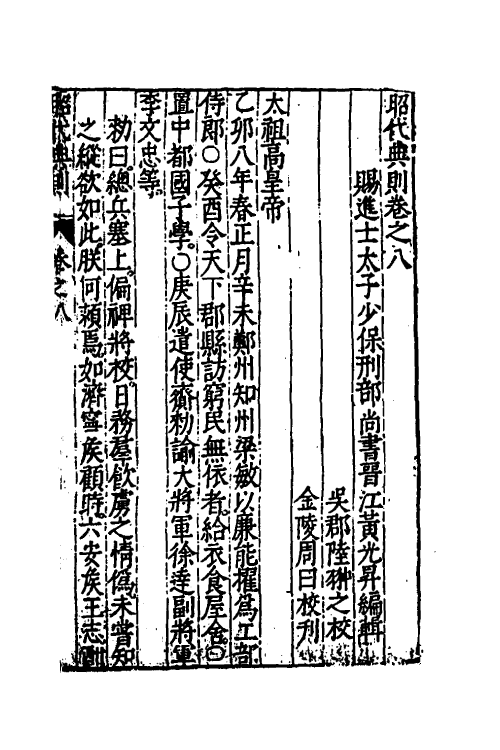 昭代典則卷之八
賜進士太子少保刑部尚書晉江黃光昇編輯
吳郡陸翀之校
金陵周曰校刊
太祖高皇帝
乙卯八年春正月辛未鄭州知州梁敏以廉能擢為工部
侍郎○癸酉令天下郡縣訪窮民無依者給衣食屋舍○
置中都國子學○庚辰遣使齎勑諭大將軍徐達副將軍
李文忠等
勑曰總兵塞上偏裨將校日務屋飲虜之情偽未嘗知
之縱欲如此朕何賴焉如濟寧侯顧時六安侯王志
昭代典則 卷之八